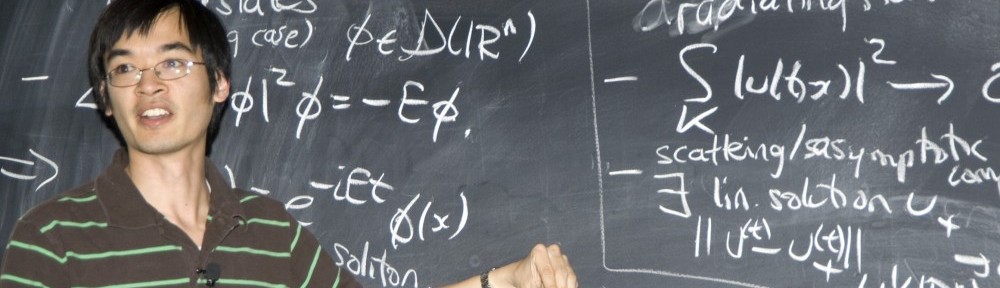 states
g case) ϕ ∈ D(ℝⁿ)
ϕ|² ϕ = -Eϕ.
⇒ e^{-iEt} ϕ(x)
soliton
radiating
- ∫_K |u(t,x)|² →
scattering/asymptotic com
- ∃ lin. solution u₊
||u(t) - u₊(t)||
→